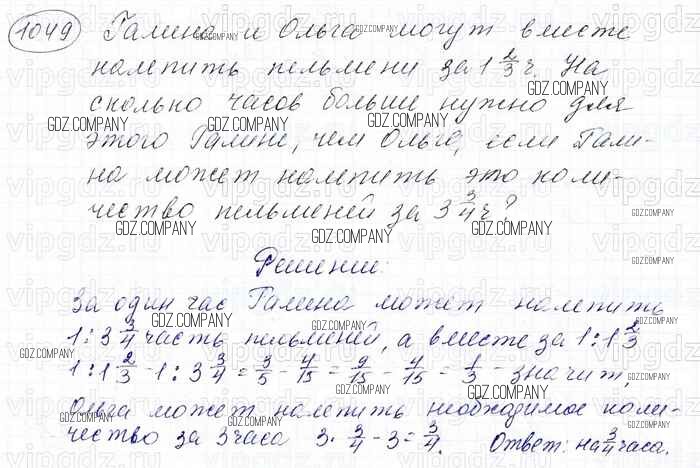 1049 Галина и Ольга могут вместе
налепить пельмени за 1 2/3 ч. На
сколько часов больше нужно для
этого Галине, чем Ольге, если Гали-
на может налепить это коли-
чество пельменей за 3 3/4 ч?
Решение:
За один час Галина может налепить
1 : 3 3/4 часть пельменей, а вместе за 1 : 1 2/3
1 : 1 2/3 - 1 : 3 3/4 = 3/5 - 4/15 = 9/15 - 4/15 = 1/3 - значит,
Ольга может налепить необходимое коли-
чество за 3 часа 3 · 3/4 - 3 = 3/4. Ответ: на 3/4 часа.